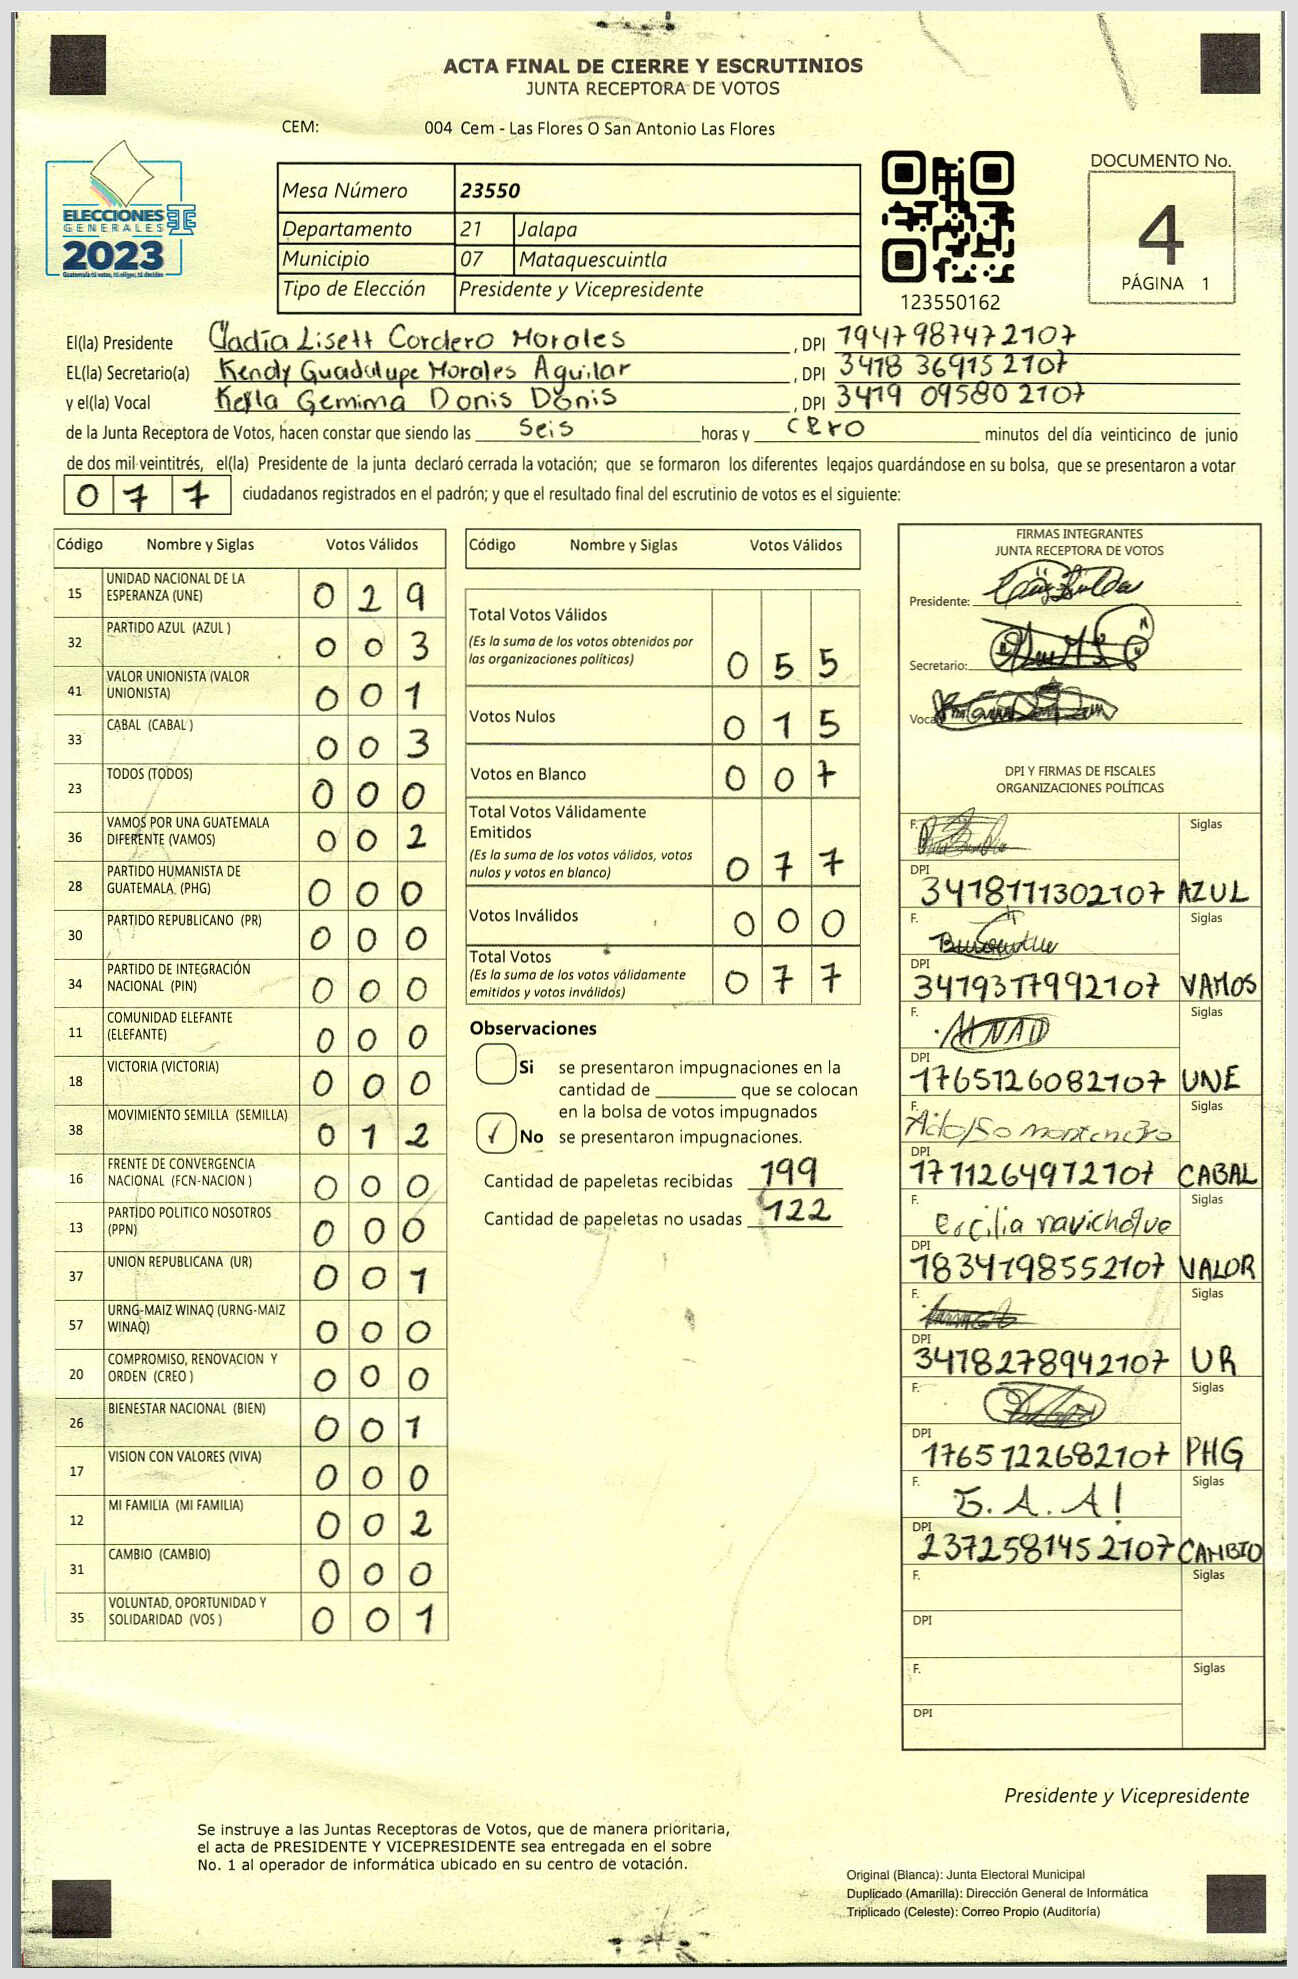 ACTA FINAL DE CIERRE Y ESCRUTINIOS
JUNTA RECEPTORA DE VOTOS
CEM: 004 Cem - Las Flores O San Antonio Las Flores
ELECCIONES
GENERALES
2023
Guatemala tú votas, tú eliges, tú decides
Mesa Número 23550
Departamento 21 Jalapa
Municipio 07 Mataquescuintla
Tipo de Elección Presidente y Vicepresidente
123550162
DOCUMENTO No.
4
PÁGINA 1
El(la) Presidente Cladia Lisett Cordero Morales, DPI 1947987472107
EL(la) Secretario(a) Kendy Guadalupe Morales Aguilar, DPI 3418 36915 2107
y el(la) Vocal Keyla Gemima Donis Donis, DPI 3419 09580 2107
de la Junta Receptora de Votos, hacen constar que siendo las seis horas y cero minutos del día veinticinco de junio
de dos mil veintitrés, el(la) Presidente de la junta declaró cerrada la votación; que se formaron los diferentes legajos guardándose en su bolsa, que se presentaron a votar
077 ciudadanos registrados en el padrón; y que el resultado final del escrutinio de votos es el siguiente:
Código Nombre y Siglas Votos Válidos
15 UNIDAD NACIONAL DE LA ESPERANZA (UNE) 029
32 PARTIDO AZUL (AZUL ) 003
41 VALOR UNIONISTA (VALOR UNIONISTA) 001
33 CABAL (CABAL ) 003
23 TODOS (TODOS) 000
36 VAMOS POR UNA GUATEMALA DIFERENTE (VAMOS) 002
28 PARTIDO HUMANISTA DE GUATEMALA (PHG) 000
30 PARTIDO REPUBLICANO (PR) 000
34 PARTIDO DE INTEGRACIÓN NACIONAL (PIN) 000
11 COMUNIDAD ELEFANTE (ELEFANTE) 000
18 VICTORIA (VICTORIA) 000
38 MOVIMIENTO SEMILLA (SEMILLA) 012
16 FRENTE DE CONVERGENCIA NACIONAL (FCN-NACION ) 000
13 PARTIDO POLITICO NOSOTROS (PPN) 000
37 UNION REPUBLICANA (UR) 001
57 URNG-MAIZ WINAQ (URNG-MAIZ WINAQ) 000
20 COMPROMISO, RENOVACION Y ORDEN (CREO ) 000
26 BIENESTAR NACIONAL (BIEN) 001
17 VISION CON VALORES (VIVA) 000
12 MI FAMILIA (MI FAMILIA) 002
31 CAMBIO (CAMBIO) 000
35 VOLUNTAD, OPORTUNIDAD Y SOLIDARIDAD (VOS ) 001
Código Nombre y Siglas Votos Válidos
Total Votos Válidos 055
(Es la suma de los votos obtenidos por
las organizaciones políticas)
Votos Nulos 015
Votos en Blanco 007
Total Votos Válidamente
Emitidos 077
(Es la suma de los votos válidos, votos
nulos y votos en blanco)
Votos Inválidos 000
Total Votos 077
(Es la suma de los votos válidamente
emitidos y votos inválidos)
Observaciones
Si se presentaron impugnaciones en la
cantidad de ________ que se colocan
en la bolsa de votos impugnados
✓ No se presentaron impugnaciones.
Cantidad de papeletas recibidas 199
Cantidad de papeletas no usadas 122
FIRMAS INTEGRANTES
JUNTA RECEPTORA DE VOTOS
Presidente:
Secretario:
Vocal
DPI Y FIRMAS DE FISCALES
ORGANIZACIONES POLÍTICAS
F. Siglas
DPI 3418111302107 AZUL
F. Siglas
DPI 3419317992107 VAMOS
F. Siglas
DPI 1765126082107 UNE
F. Siglas
DPI 1711264972107 CABAL
F. Ercilia navichoque Siglas
DPI 1834198552107 VALOR
F. Siglas
DPI 3418278942107 UR
F. Siglas
DPI 1765122682107 PHG
F. Siglas
DPI 2372581452107 CAMBIO
F. Siglas
DPI
F. Siglas
DPI
Presidente y Vicepresidente
Se instruye a las Juntas Receptoras de Votos, que de manera prioritaria,
el acta de PRESIDENTE Y VICEPRESIDENTE sea entregada en el sobre
No. 1 al operador de informática ubicado en su centro de votación.
Original (Blanca): Junta Electoral Municipal
Duplicado (Amarilla): Dirección General de Informática
Triplicado (Celeste): Correo Propio (Auditoría)